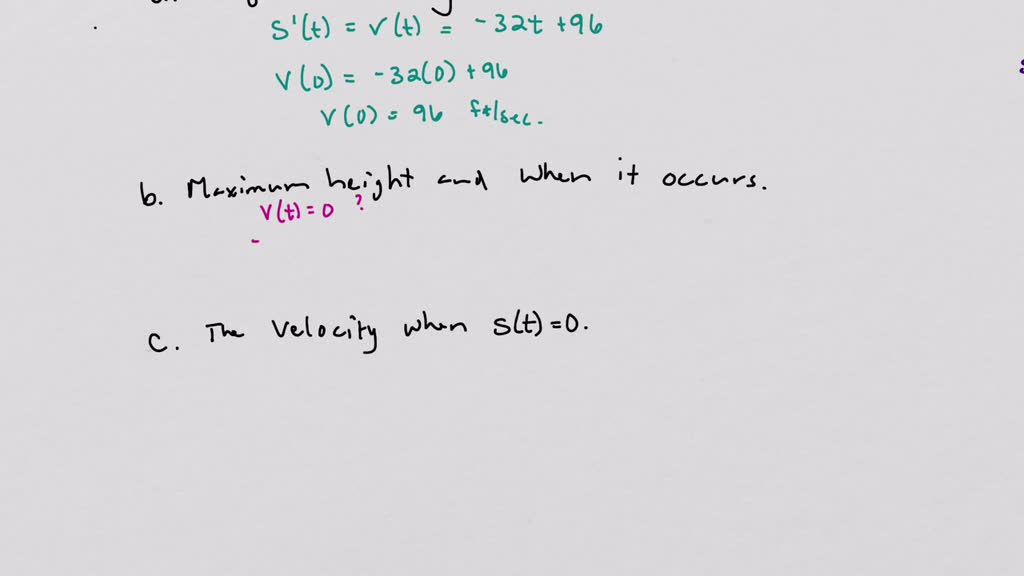 S'(t) = v(t) = -32t +96
v(0) = -32(0) +96
v(0) = 96 ft/sec.
b. Maximum height and when it occurs.
v(t)=0 ?
-
c. The velocity when s(t)=0.